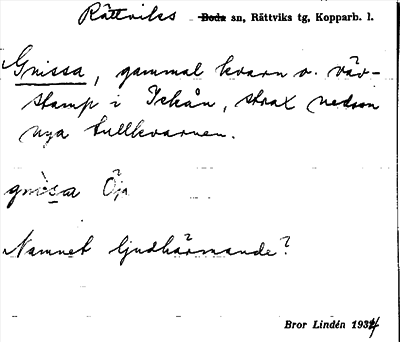 Rättviks Boda sn, Rättviks tg, Kopparb. l.
Gnissa, gammal kvarn o. väv-
stamp i Ickån, strax nedom
nya tullkvarnen.
gnìsa Öja
Namnet ljudhärmande?
Bror Lindén 1934